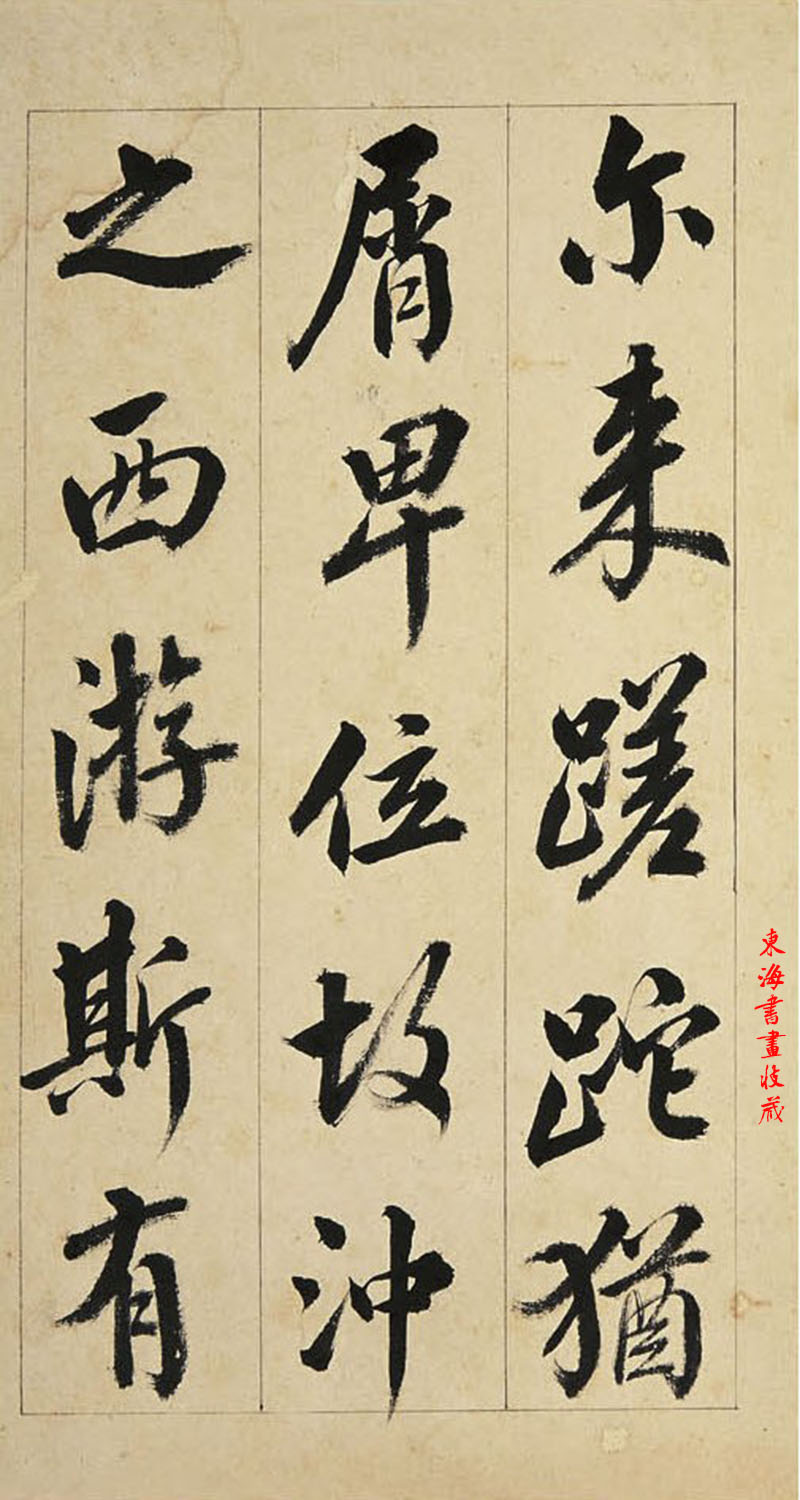 尔来蹉跎犹
屑卑位故冲
之西游斯有
東海書畫收藏